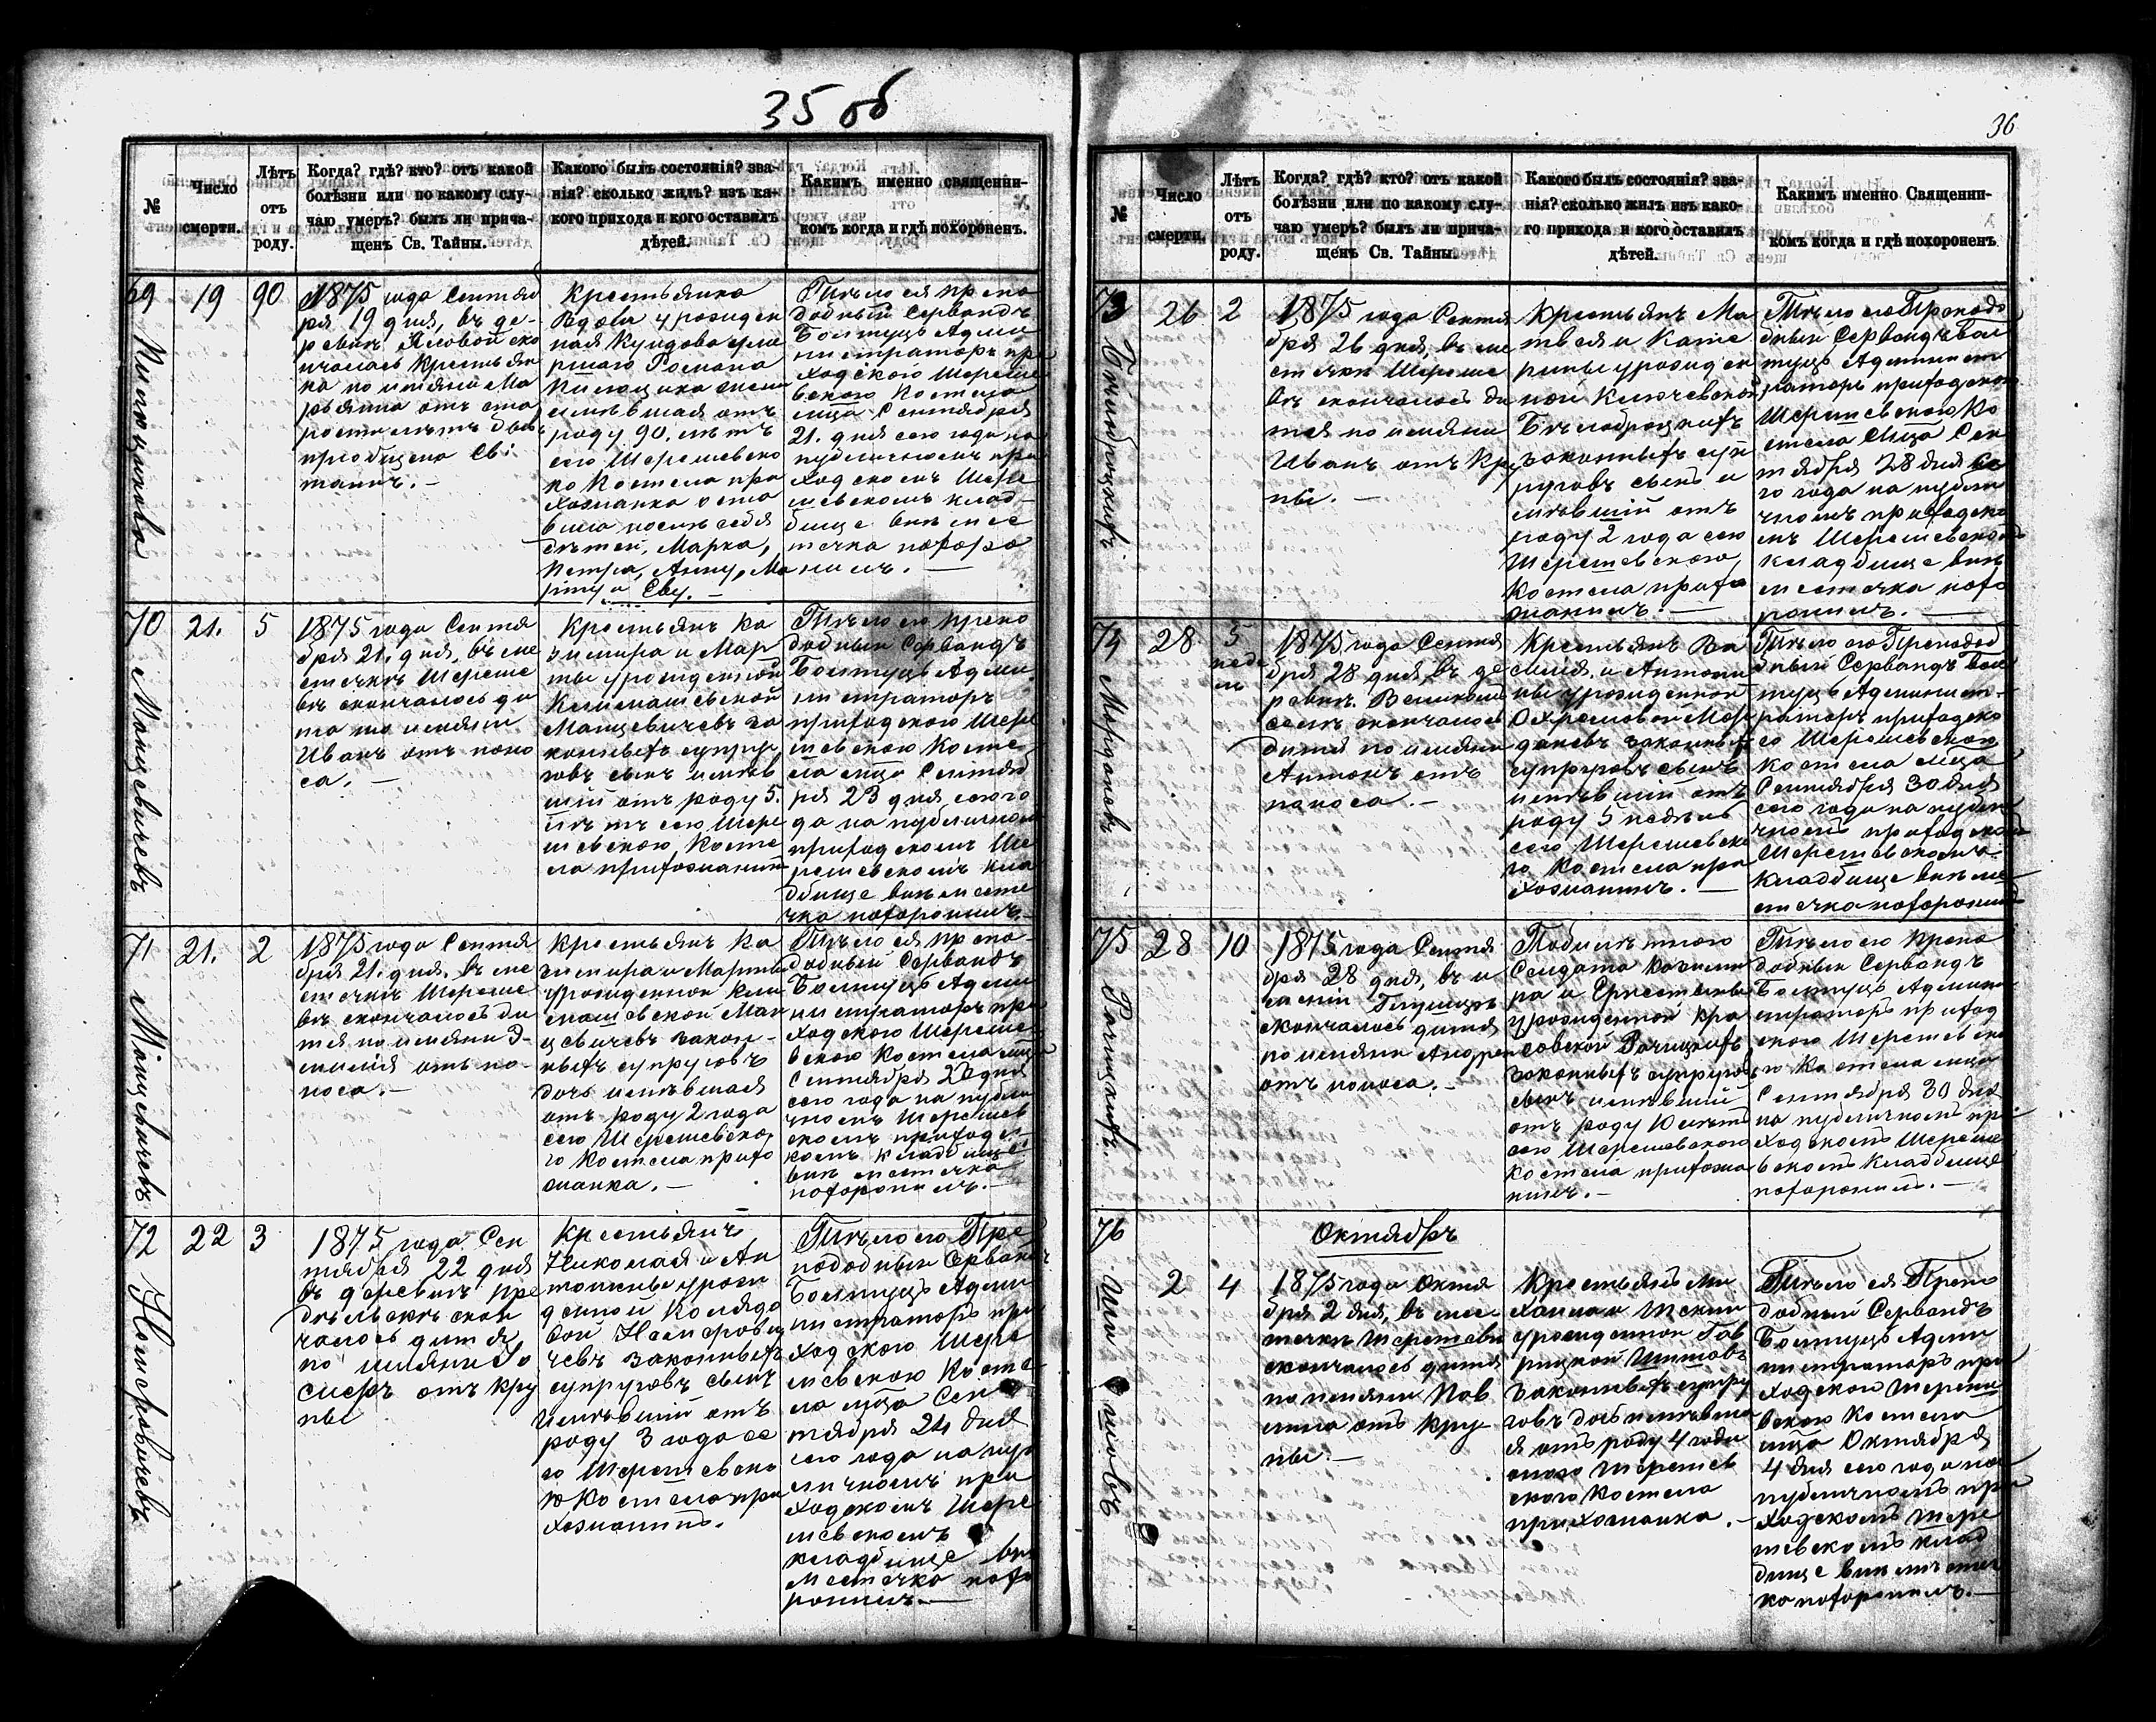 35 об
№
Число
смерти.
Лѣтъ
отъ
роду.
Когда? гдѣ? кто? отъ какой
болѣзни или по какому слу-
чаю умеръ? былъ ли прича-
щенъ Св. Тайны.
Какого былъ состоянія? зва-
нія? сколько жилъ? изъ ка-
кого прихода и кого оставилъ
дѣтей.
Какимъ именно священни-
комъ когда и гдѣ похороненъ.
69
19
90
1875 года Сентяб
ря 19 дня, въ де-
ревнѣ
ско
нчалась Крестьян
ка по имѣни Ма
рьянна отъ ста
рости лѣтъ бывъ
приобщена Св:
таинъ. —
Крестьянка
Вдова урожден
ная
уме
ршаго Романа
жена
имѣвшая отъ
роду 90. лѣтъ
сего Шерешевска
го Костела при
хожанка оста
вила послѣ себя
дѣтей, Марка,
Петра, Анну, Ма
рину и Еву. —
Тѣло ея препо
добный Сервандъ
Болтуць Адми
нистраторъ при
ходскаго Шереше
вскаго Костела
мца Сентября
21. дня сего года на
публичномъ при
ходскомъ Шере
шевскомъ клад-
бище внѣ мес
течка похоро
нилъ. —
70
Манцевичевъ
21.
5
1875 года Сентя
бря 21. дня, въ ме
стечкѣ Шереше
вѣ скончалось ди
тя по имѣни
Иванъ отъ поно
са. —
Крестьянъ Ка
зимира и Мар
ты урожденной
Климашевской
Манцевичевъ за
конныхъ супру
говъ сынъ имѣв
шій отъ роду 5.
лѣтъ сего Шере
шевскаго Косте
ла прихожанинъ
Тѣло его препо
добный Сервандъ
Болтуць Адми
нистраторъ
приходскаго Шере
шевскаго Косте
ла мца Сентяб
ря 23 дня сего го
да на публичномъ
приходскомъ Ше
решевскомъ кла
дбище внѣ месте
чка похоронилъ. —
71
Манцевичевъ
21.
2
1875 года Сентя
бря 21. дня, въ ме
стечкѣ Шереше
вѣ скончалось ди
тя по имѣни Э-
милія отъ по-
носа. —
Крестьянъ Ка
зимира и Марты
Урожденной Кли
машевской Ман
цевичевъ закон-
ныхъ супруговъ
дочь имѣвшая
отъ роду 2 года
сего Шерешевска
го Костела прихо
жанка. —
Тѣло ея препо-
добный Сервандъ
Болтуць Адми
нистраторъ при
ходскаго Шереше
вскаго Костела мца
Сентября 23 дня
сего года на публи
чномъ Шерешев
скомъ приходс-
комъ кладбище
внѣ местечка
похоронилъ. —
72
22
3
1875 года Сен
тября 22 дня
въ деревнѣ
скон
чалось дитя
по имѣни Іо
сифъ отъ кру
пы
Крестьянъ
Николая и Ан
тонины урож
денной Коледо
вой
чевъ законныхъ
супруговъ сынъ
имѣвшій отъ
роду 3 года се
го Шерешевска
го Костела при
хожанинъ.
Тѣло его Пре
подобный Сервандъ
Болтуць Адми
нистраторъ при
ходскаго Шере
шевскаго Косте
ла мца Сен
тября 24 дня
сего года на пуб
личномъ при
ходскомъ Шере
шевскомъ
кладбище внѣ
местечка похо
ронилъ. —
36
№
Число
смерти.
Лѣтъ
отъ
роду.
Когда? гдѣ? кто? отъ какой
болѣзни или по какому слу-
чаю умеръ? былъ ли прича-
щенъ Св. Тайны.
Какого былъ состоянія? зва-
нія? сколько жилъ изъ како-
го прихода и кого оставилъ
дѣтей.
Какимъ именно Священни-
комъ когда и гдѣ похороненъ
73
26
2
1875 года Сентя
бря 26 дня, въ ме
стечкѣ Шереше
вѣ скончалось ди
тя по имѣни
Иванъ отъ Кру
пы. —
Крестьянъ Ма
твея и Кате
рины урожден
ной Ключевской
Бѣлобродскихъ
законныхъ суп
руговъ сынъ и
мѣвшій отъ
роду 2 года сего
Шерешевскаго
Костела прихо
жанинъ. —
Тѣло его Преподо
бный Сервандъ Бол
туць Администр
раторъ приходскаго
Шерешевскаго Ко
стела мца Сен
тября 28 дня се
го года на публи
чномъ приходско
мъ Шерешевскомъ
кладбище внѣ
местечка похо
ронилъ. —
74
28
5
неде
ль
1875 года Сентя
бря 28 дня, въ де
ревнѣ
селѣ скончалось
дитя по имѣни
Антонъ отъ
поноса. —
Крестьянъ Ва
силія и Антони
ны урожденной
законныхъ
супруговъ сынъ
имѣвшій отъ
роду 5 недѣль
сего Шерешевска
го Костела при
хожанинъ. —
Тѣло его Преподоб
бный Сервандъ Бол
туць Администр-
раторъ приходска
го Шерешевскаго
Костела мца
Сентября 30 дня
сего года на публи
чномъ приходскомъ
Шерешевскомъ
кладбище внѣ ме
стечка похоронилъ
75
28
10
1875 года Сентя
бря 28 дня, въ и
мѣніи
скончалось дитя
по имѣни Андрей
отъ поноса. —
Солдата Казими
ра и
урожденной Кра
совской
законныхъ супруговъ
сынъ имѣвшій
отъ роду 10 лѣтъ
сего Шерешевскаго
Костела прихожа
нинъ. —
Тѣло его препо
добный Сервандъ
Болтуць Админи
страторъ приход
скаго Шерешевска
го Костела мца
Сентября 30 дня
на публичномъ при
ходскомъ Шереше
вскомъ кладбище
похоронилъ. —
76
Октябрь
2
4
1875 года Октя
бря 2 дня, въ мес
течкѣ Шерешевѣ
скончалось дитя
по имѣни Пав
лина отъ кру
пы. —
Крестьянъ Ми
хаила и Теклы
урожденной Гав
рицкой
законныхъ супру
говъ дочь имѣвша
я отъ роду 4 года
онаго Шерешев
скаго Костела
прихожанка. —
Тѣло ея Препо
добный Сервандъ
Болтуць Адми
нистраторъ при
ходскаго Шереше
вскаго Костела
мца Октября
4 дня сего года на
публичномъ при
ходскомъ Шере
шевскомъ клад
бище внѣ местеч
ка похоронилъ. —